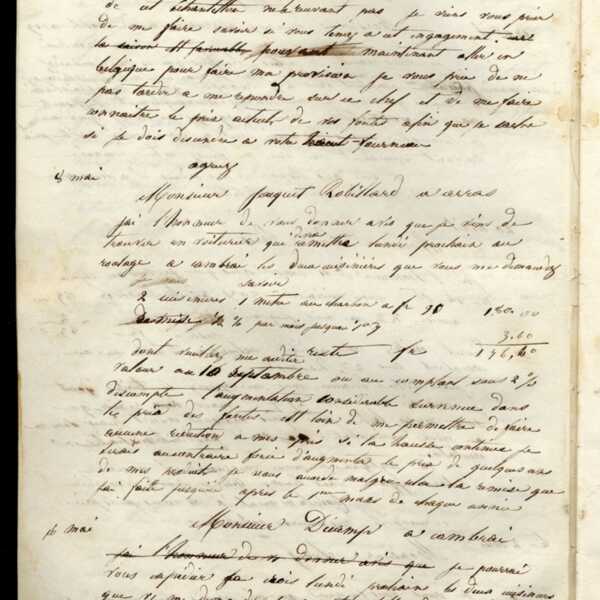 de cet échantillon ne trouvant pas je viens vous prier
de me faire savoir si vous tenez a cet engagement
la saison est favorable pouvant maintenant aller en
belgique pour faire ma provision je vous prie de ne
pas tarder a me repondre sur ce chef et de me faire
connaitre le prix actuels de vos fontes afin que je sache
si je dois descendre a votre fourneau
agreez
8 mai
Monsieur fouquet Robillard a arras
jai l'honneur de vous donner avis que je viens de
trouver un voiturier qui remettra lundi prochain au
roulage a cambrai les deux cuisinières que vous me demandez
savoir
2 cuisinieres 1 metre au charbon a fr 90 180.00
Remise ½ % par mois jusqua 3.60
dont veuillez me crediter reste fr 176,40
valeur au 10 septembre ou au comptant sous 2 %
d'escompte l'augmentation considérable survenue dans
le prix des fontes est loin de me permettre de faire
aucune reduction a mes prix si la hausse continue je
serais au contraire forcé d'augmenter le prix de quelques uns
de mes produits je vous accorde malgré cela la remise que
jai faite jusqu'ici apres le 1er mars de chaque année
16 mai
Monsieur Decamp a cambrai
jai l'honneur de donner avis que je pourrai
vous expedier je crois lundi prochain les deux cuisinieres